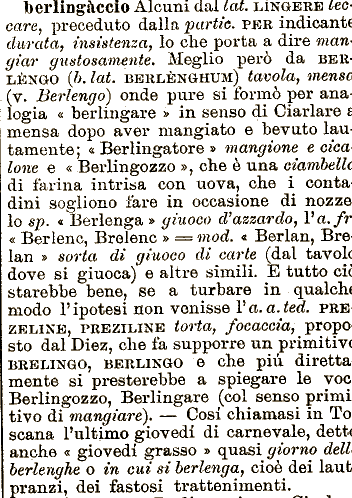 berlingàccio Alcuni dal lat. LINGERE lec-
care, preceduto dalla partic. PER indicante
durata, insistenza, lo che porta a dire man-
giar gustosamente. Meglio però da BER-
LÈNGO (b. lat. BERLÈNGHUM) tavola, mensa
(v. Berlengo) onde pure si formò per ana-
logia « berlingare » in senso di Ciarlare a
mensa dopo aver mangiato e bevuto lau-
tamente; « Berlingatore » mangione e cica-
lone e « Berlingozzo », che è una ciambella
di farina intrisa con uova, che i conta-
dini sogliono fare in occasione di nozze
lo sp. « Berlenga » giuoco d'azzardo, l'a. fr
« Berlenc, Brelenc » = mod. « Berlan, Bre-
lan » sorta di giuoco di carte (dal tavolo
dove si giuoca) e altre simili. E tutto ciò
starebbe bene, se a turbare in qualche
modo l'ipotesi non venisse l'a. a. ted. PRE-
ZELINE, PREZILINE torta, focaccia, propo-
sto dal Diez, che fa supporre un primitivo
BRELINGO, BERLINGO e che piú diretta
mente si presterebbe a spiegare le voc
Berlingozzo, Berlingare (col senso primi
tivo di mangiare). — Cosí chiamasi in To
scana l'ultimo giovedí di carnevale, dett
anche « giovedí grasso » quasi giorno dell
berlenghe o in cui si berlenga, cioè dei laut
pranzi, dei fastosi trattenimenti.